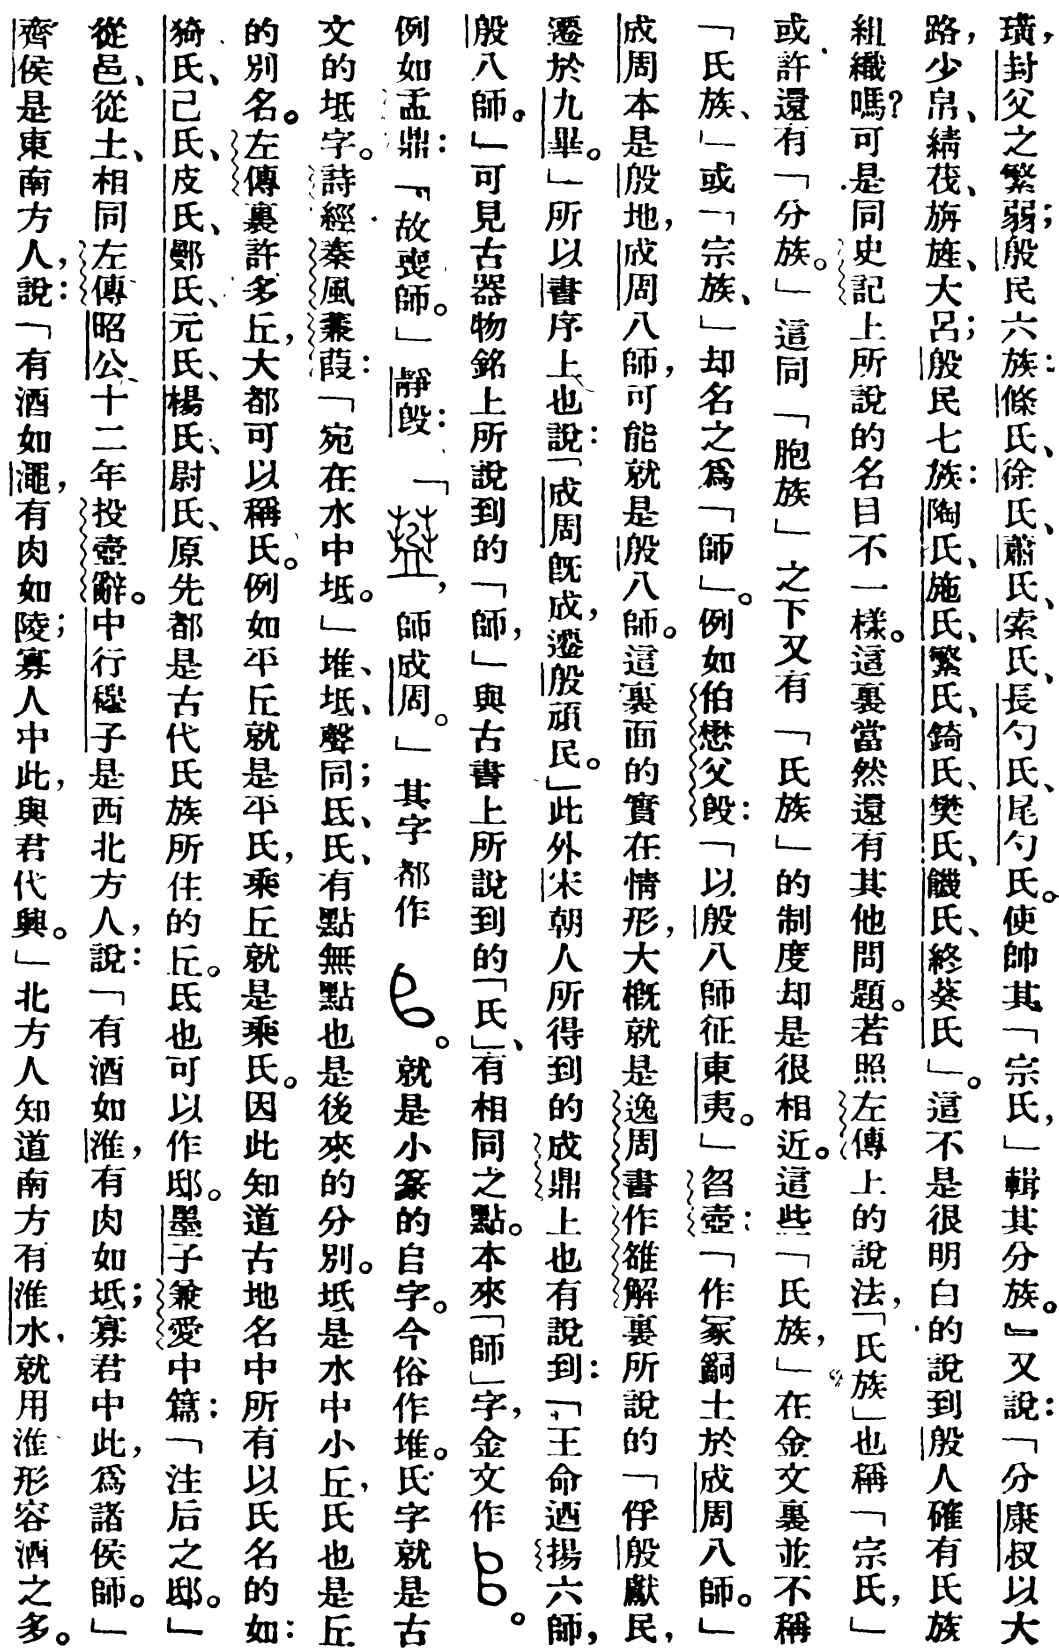 璜，封父之繁弱；殷民六族：條氏、徐氏、蕭氏、索氏、長勺氏、尾勺氏。使帥其「宗氏，」輯其分族。』又說：「分康叔以大
路，少帛、綪茷、旃旌、大呂；殷民七族：陶氏、施氏、繁氏、錡氏、樊氏、饑氏、終葵氏」。這不是很明白的說到殷人確有氏族
組織嗎？可是同史記上所說的名目不一樣。這裏當然還有其他問題。若照左傳上的說法，「氏族」也稱「宗氏，」
或許還有「分族。」這同「胞族」之下又有「氏族」的制度却是很相近。這些「氏族，」在金文裏並不稱
「氏族、」或「宗族、」却名之爲「師」。例如伯懋父𣪘：「以殷八師征東夷。」曶壺：「作冢嗣土於成周八師。」
成周本是殷地，成周八師，可能就是殷八師。這裏面的實在情形，大概就是逸周書作雒解裏所說的「俘殷獻民，
遷於九畢。」所以書序上也說：「成周旣成，遷殷頑民。」此外宋朝人所得到的成鼎上也有說到：「王命迺揚六師，
殷八師。」可見古器物銘上所說到的「師，」與古書上所說到的「氏」、有相同之點。本來「師」字，金文作。
例如盂鼎：「故喪師。」靜𣪘：「，師成周。」其字都作。就是小篆的𠂤字。今俗作堆。氏字就是古
文的坻字。詩經秦風蒹葭：「宛在水中坻。」堆、坻、聲同；氏、氐、有點無點也是後來的分別。坻是水中小丘，氏也是丘
的別名。左傳裏許多丘，大都可以稱氏。例如平丘就是平氏，乘丘就是乘氏。因此知道古地名中所有以氏名的如：
猗氏、己氏、皮氏、鄡氏、元氏、楊氏、尉氏、原先都是古代氏族所住的丘。氐也可以作邸。墨子兼愛中篇：「注后之邸。」
從邑、從土、相同左傳昭公十二年投壺辭。中行穆子是西北方人，說：「有酒如淮，有肉如坻；寡君中此，爲諸侯師。」
齊侯是東南方人，說：「有酒如澠，有肉如陵；寡人中此，與君代興。」北方人知道南方有淮水，就用淮形容酒之多。